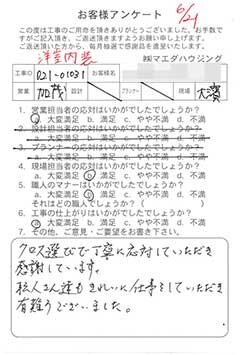 お客様アンケート
6/21
この度は工事のご用命を頂きありがとうございました。お手数で
すがご記入頂き、ご返送頂きますようお願い申し上げます。
ご返送頂いた方から、毎月抽選で感謝品を進呈いたします。
洋室内装
㈱マエダハウジング
工事ID 021-01031 お客様名
営業 加茂 設計 プランナー 現場 大澤
1. 営業担当者の応対はいかがでしたでしょうか？
a. 大変満足 b. 満足 c. やや不満 d. 不満
2. 設計担当者の応対はいかがでしたでしょうか？
a. 大変満足 b. 満足 c. やや不満 d. 不満
3. プランナーの応対はいかがでしたでしょうか？
a. 大変満足 b. 満足 c. やや不満 d. 不満
4. 現場担当者の応対はいかがでしたでしょうか？
a. 大変満足 b. 満足 c. やや不満 d. 不満
5. 職人のマナーはいかがでしたでしょうか？
a. 大変満足 b. 満足 c. やや不満 d. 不満
それはどの職人でしょうか？ （ ）
6. 工事の仕上がりはいかがでしたでしょうか？
a. 大変満足 b. 満足 c. やや不満 d. 不満
7. その他、ご意見・ご要望をお書き下さい。
クロス選びで丁寧に応対していただき
感謝しています。
職人さん達もきれいに仕事をしていただき
有難うございました。